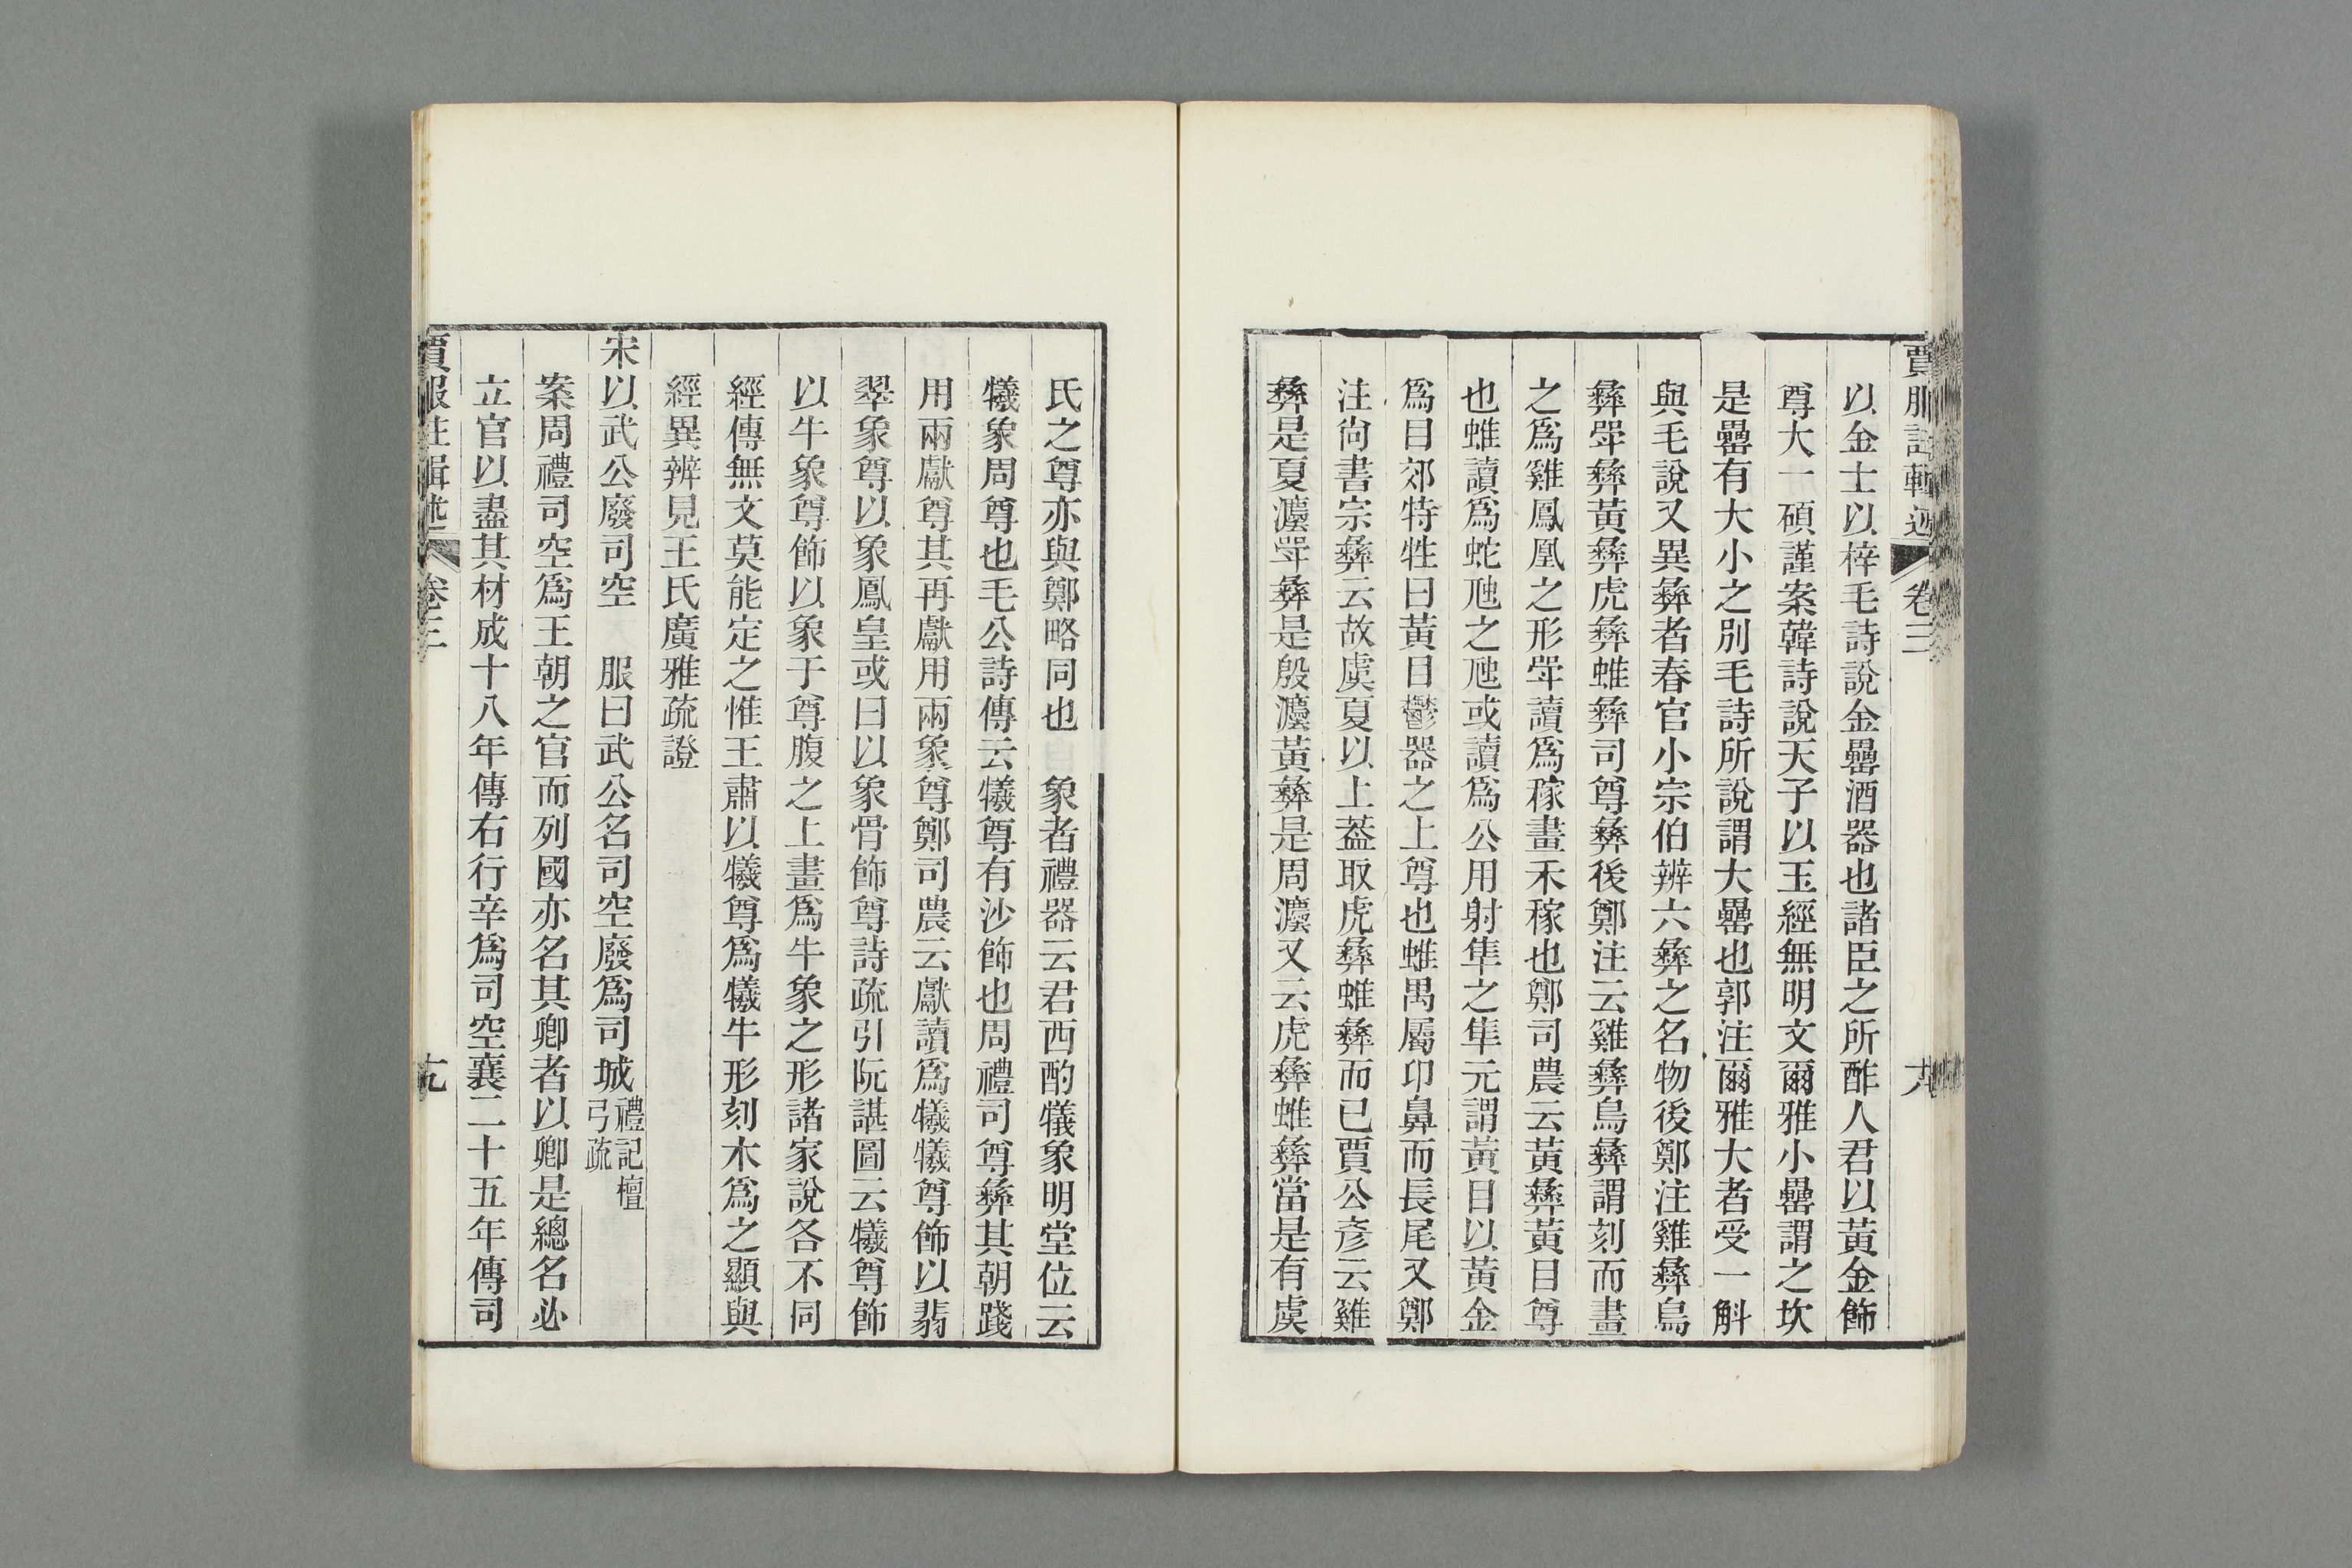 賈服註輯述 卷三 十八
以金士以梓毛詩說金罍酒器也諸臣之所酢人君以黃金飾
尊大一 碩謹案韓詩說天子以玉經無明文爾雅小罍謂之坎
是罍有大小之別毛詩所說謂大罍也郭注爾雅大者受一斛
與毛說又異彝者春官小宗伯辨六彝之名物後鄭注雞彝鳥
彝斝彝黃彝虎彝蜼彝司尊彝後鄭注云雞彝鳥彝謂刻而畫
之爲雞鳳凰之形斝讀爲稼畫禾稼也鄭司農云黃彝黃目尊
也蜼讀爲蛇虺之虺或讀爲公用射隼之隼元謂黃目以黃金
爲目郊特牲曰黃目鬱器之上尊也蜼禺屬卬鼻而長尾又鄭
注尙書宗彝云故虞夏以上葢取虎彝蜼彝而已賈公彥云雞
彝是夏灋斝彝是殷灋黃彝是周灋又云虎彝蜼彝當是有虞
氏之尊亦與鄭略同也 象者禮器云君西酌犧象明堂位云
犧象周尊也毛公詩傳云犧尊有沙飾也周禮司尊彝其朝踐
用兩獻尊其再獻用兩象尊鄭司農云獻讀爲犧犧尊飾以翡
翠象尊以象鳳皇或曰以象骨飾尊詩疏引阮諶圖云犧尊飾
以牛象尊飾以象于尊腹之上畫爲牛象之形諸家說各不同
經傳無文莫能定之惟王肅以犧尊爲犧牛形刻木爲之顯與
經異辨見王氏廣雅疏證
宋以武公廢司空 服曰武公名司空廢爲司城禮記檀弓疏
案周禮司空爲王朝之官而列國亦名其卿者以卿是總名必
立官以盡其材成十八年傳右行辛爲司空襄二十五年傳司
賈服註輯述 卷三 十九